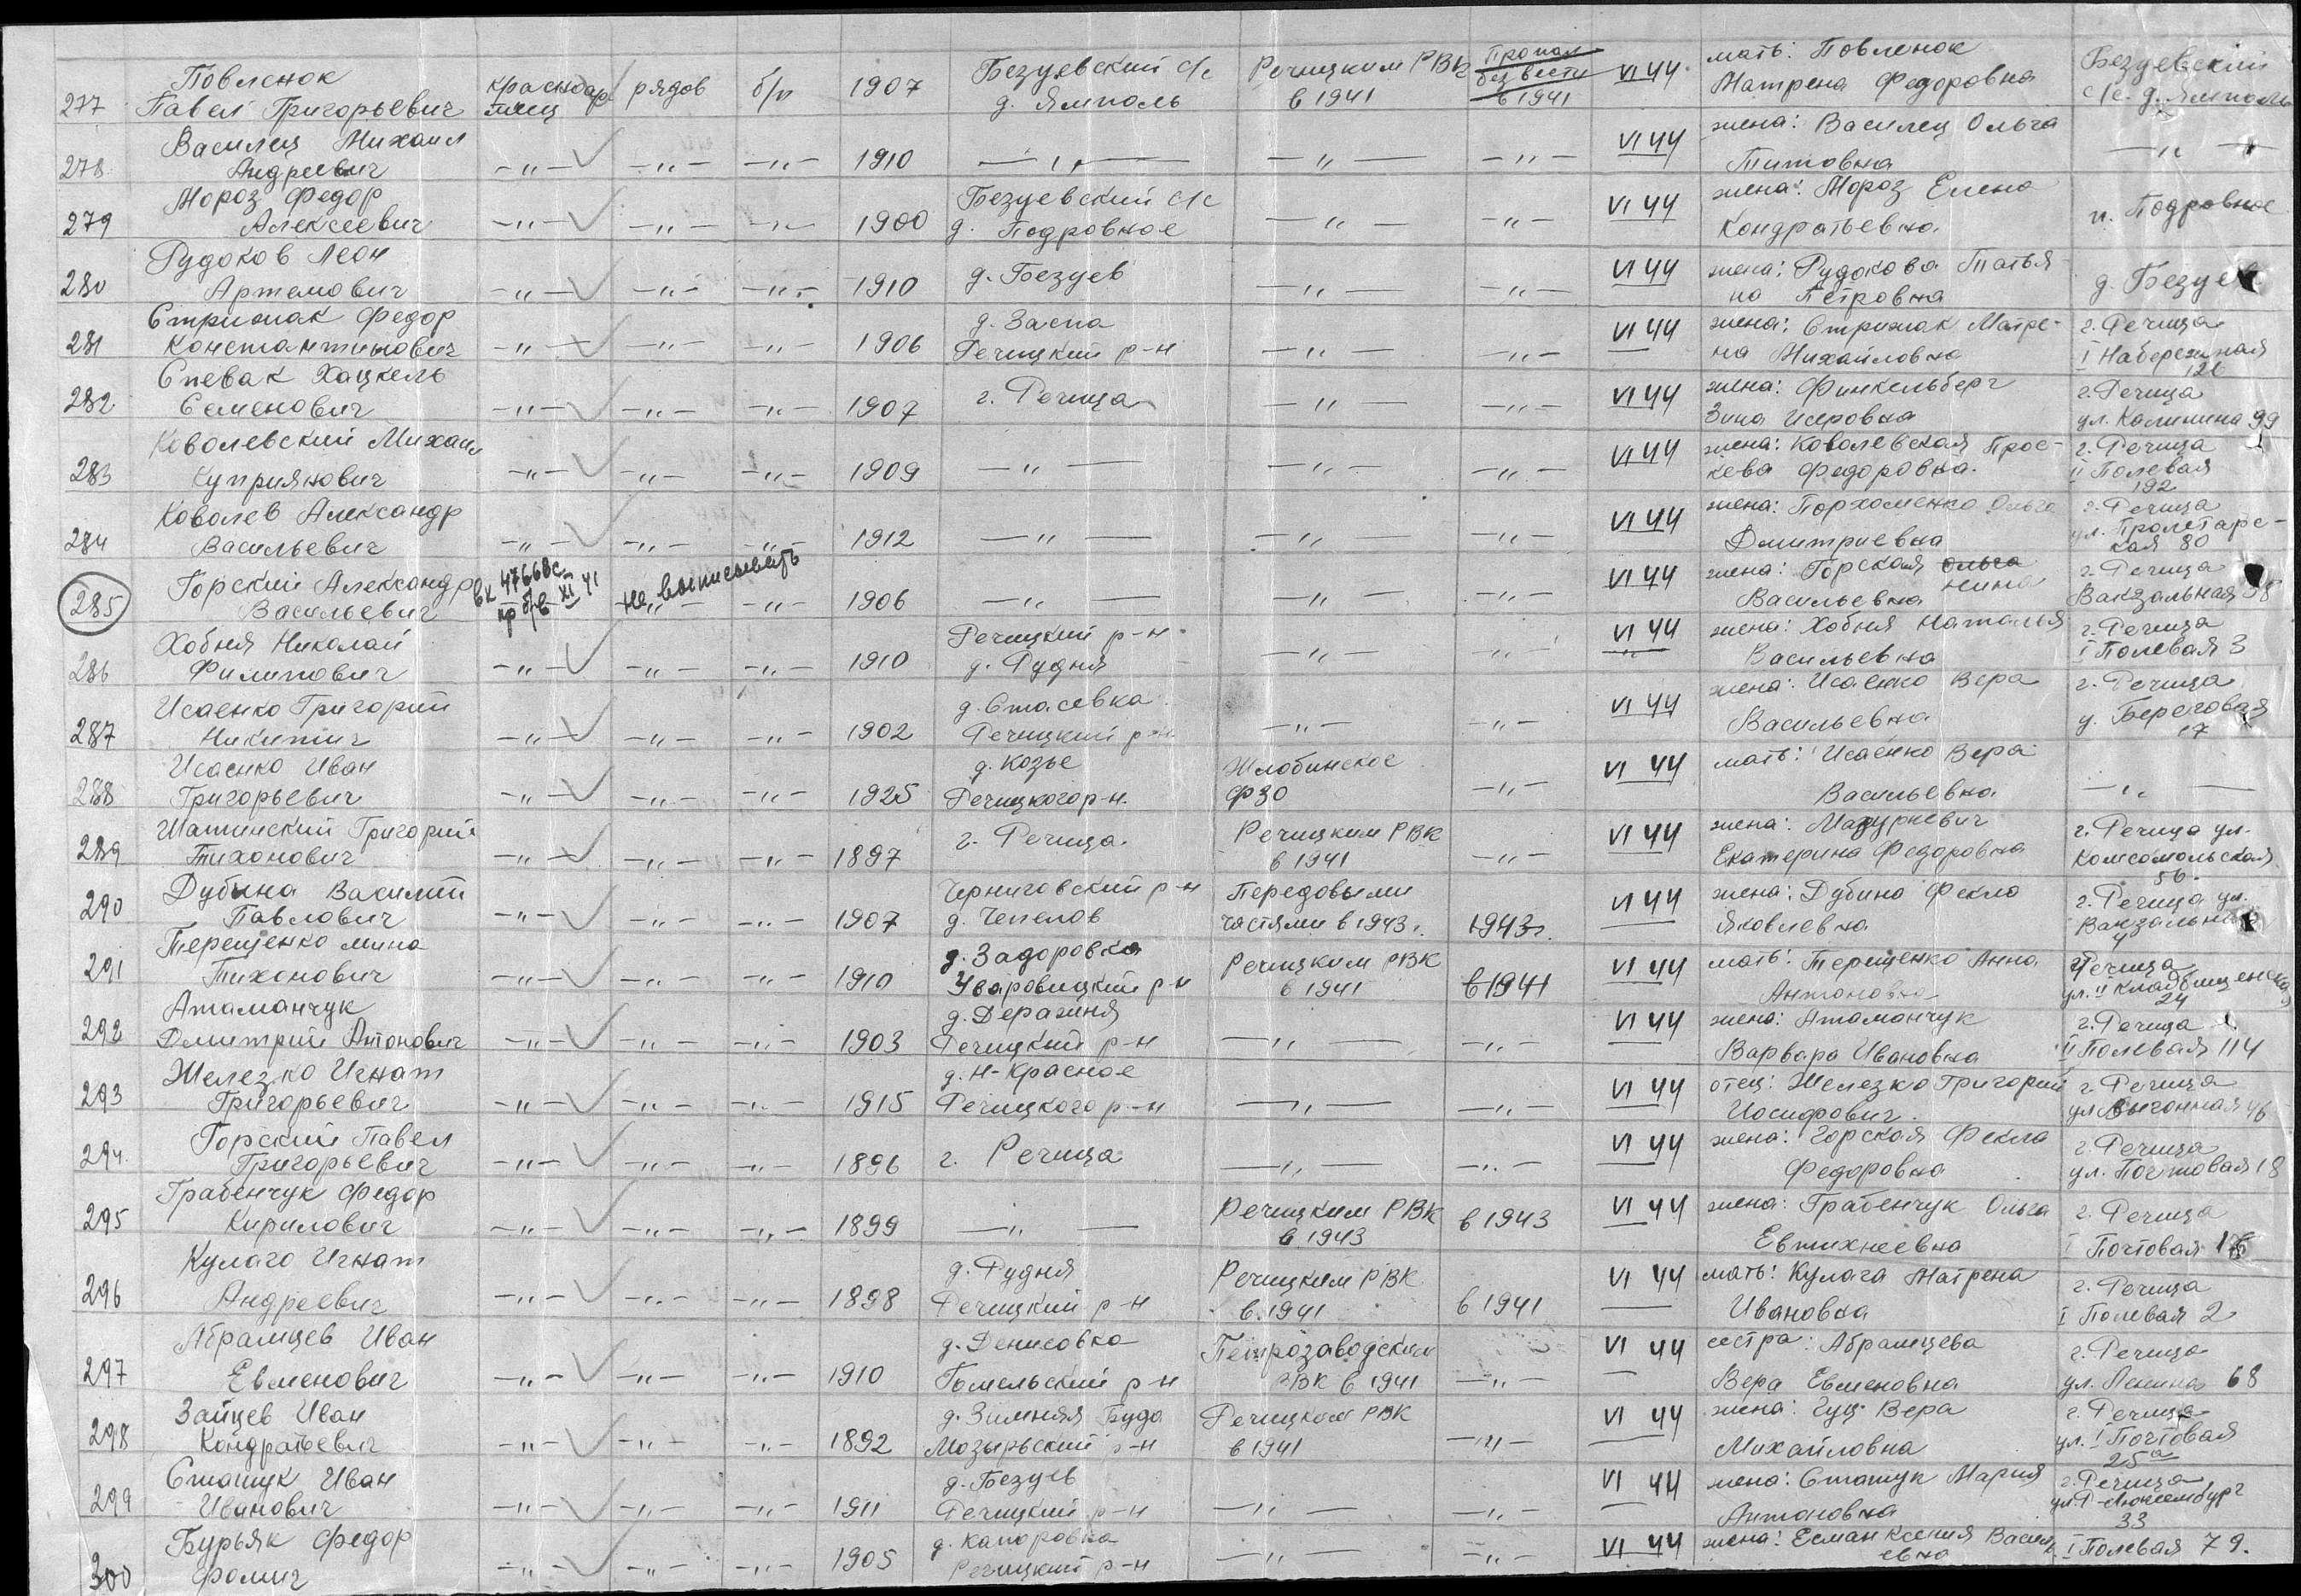 277 Повленок Павел Григорьевич краснoар меец рядов б/п 1907 Безуевский с/с д. Ямполь Речицким РВК в 1941 Пропал без вести в 1941 VI 44 мать: Повленок Матрена Федоровна Безуевский с/с. д. Ямполь
278 Василец Михаил Андреевич -„- -„- -„- 1910 -„- -„- -„- VI 44 жена: Василец Ольга Титовна -„-
279 Мороз Федор Алексеевич -„- -„- -„- 1900 Безуевский с/с д. Подровное -„- -„- VI 44 жена: Мороз Елена Кондратьевна п. Подровное
280 Рудоков Леон Артемович -„- -„- -„- 1910 д. Безуев -„- -„- VI 44 жена: Рудокова Татья на Петровна д. Безуев
281 Стрижак Федор Константинович -„- -„- -„- 1906 д. Заспа Речицкий р-н -„- -„- VI 44 жена: Стрижак Матре- на Михайловна г. Речица I Набережная 126
282 Спевак Хацкель Семенович -„- -„- -„- 1907 г. Речица -„- -„- VI 44 жена: Финкельберг Зина Исеровна г. Речица ул. Калинина 99
283 Ковалевский Михаил Куприянович -„- -„- -„- 1909 -„- -„- -„- VI 44 жена: Ковалевская Прос- кева Федоровна. г. Речица II Полевая 192
284 Ковалев Александр Васильевич -„- -„- -„- 1912 -„- -„- -„- VI 44 жена: Порхоменко Ольга Дмитриевна г. Речица ул. Пролетарс- кая 80
285 Горский Александр Васильевич вк 47668с пр б/в XI 41 не выписывать -„- -„- 1906 -„- -„- -„- VI 44 жена: Горская Ольга Нина Васильевна г. Речица Вакзальная 58
286 Хобня Николай Филипович -„- -„- -„- 1910 Речицкий р-н. д. Рудня -„- -„- VI 44 жена: Хобня Наталья Васильевна г. Речица I Полевая 3
287 Исаенко Григорий Никитич -„- -„- -„- 1902 д. Стасевка Речицкий р-н -„- -„- VI 44 жена: Исаенко Вера Васильевна г. Речица у. Береговая 17
288 Исаенко Иван Григорьевич -„- -„- -„- 1925 д. Козье Речицкого р-н. Жлобинское ФЗО -„- VI 44 мать: Исаенко Вера Васильевна -„-
289 Шатинский Григорий Тихонович -„- -„- -„- 1897 г. Речица. Речицким РВК в 1941 -„- VI 44 жена: Мазуркевич Екатерина Федоровна г. Речица ул. Комсомольская 56.
290 Дубина Василий Павлович -„- -„- -„- 1907 Черниговский р-н д. Чепелов Передовыми частями в 1943г. 1943г. VI 44 жена: Дубино Фекла Яковлевна г. Речица ул. Вакзальная 4
291 Терещенко Мина Тихонович -„- -„- -„- 1910 д. Задоровка Уваровицкий р-н Речицким РВК в 1941 в 1941 VI 44 мать: Терещенко Анна Антоновна г. Речица ул. II Кладбищенская 24
292 Атаманчук Дмитрий Антонович -„- -„- -„- 1903 д. Деражня Речицкий р-н -„- -„- VI 44 жена: Атаманчук Варвара Ивановна г. Речица II Полевая 114
293 Железко Игнат Григорьевич -„- -„- -„- 1915 д. Н-Красное Речицкого р-н -„- -„- VI 44 отец: Железко Григорий Иосифович. г. Речица ул Выгонная 46
294. Горский Павел Григорьевич -„- -„- -„- 1896 г. Речица -„- -„- VI 44 жена: Горская Фекла Федоровна г. Речица ул. Почтовая 18
295 Грабенчук Федор Кирилович -„- -„- -„- 1899 -„- Речицким РВК в 1943 в 1943 VI 44 жена: Грабенчук Ольга Евтихнеевна г. Речица I Почтовая
296 Кулаго Игнат Андреевич -„- -„- -„- 1898 д. Рудня Речицкий р-н Речицким РВК в. 1941 в 1941 VI 44 мать: Кулага Матрена Ивановна г. Речица I Полевая 2
297 Абрамцев Иван Евменович -„- -„- -„- 1910 д. Денисовка Гомельский р-н Петрозаводским РВК в 1941 -„- VI 44 сестра: Абрамцева Вера Евменовна г. Речица ул. Ленина 68
298 Зайцев Иван Кондратьевич -„- -„- -„- 1892 д. Зимняя Буда Мозырьский р-н Речицким РВК в 1941 -„- VI 44 жена: Гуц Вера Михайловна г. Речица ул. I Почтовая 25а
299 Сташук Иван Иванович -„- -„- -„- 1911 д. Безуев Речицкий р-н -„- -„- VI 44 жена: Сташук Мария Антоновна г. Речица ул Р-Люксембург 33
300 Бурьяк Федор Фомич -„- -„- -„- 1905 д. Капоровка Речицкий р-н -„- -„- VI 44 жена: Есман Ксения Василь евна I Полевая 79.